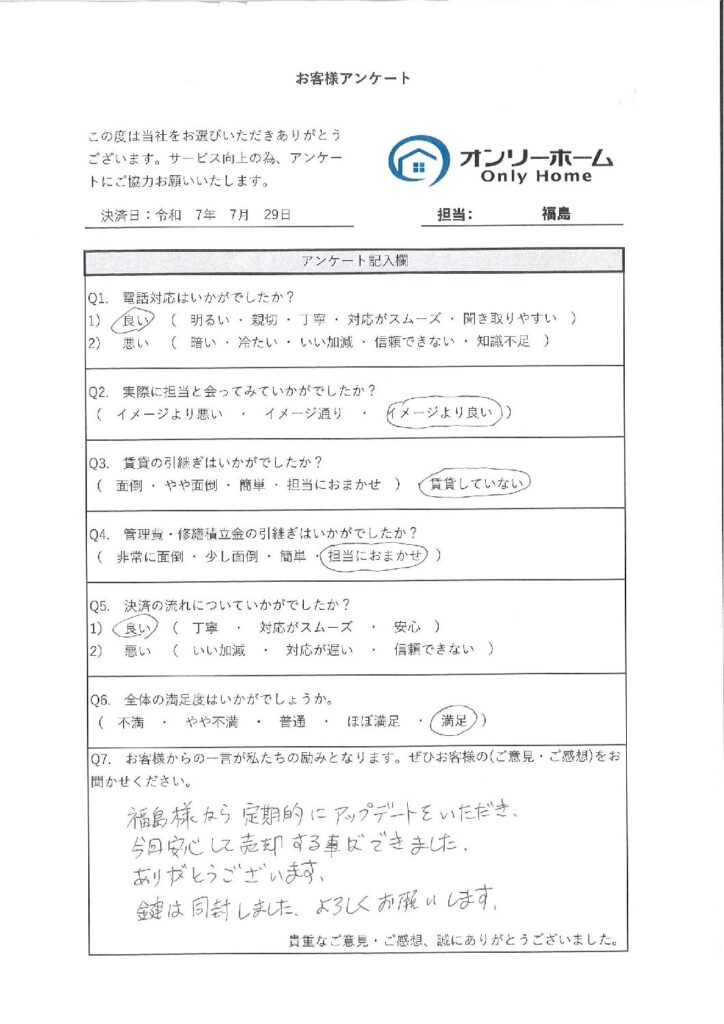 お客様アンケート
この度は当社をお選びいただきありがとう
ございます。サービス向上の為、アンケー
トにご協力お願いいたします。
オンリーホーム
Only Home
決済日：令和 7年 7月 29日
担当： 福島
アンケート記入欄
Q1. 電話対応はいかがでしたか？
1) 良い （ 明るい ・ 親切 ・ 丁寧 ・ 対応がスムーズ ・ 聞き取りやすい ）
2) 悪い （ 暗い ・ 冷たい ・ いい加減 ・ 信頼できない ・ 知識不足 ）
Q2. 実際に担当と会ってみていかがでしたか？
（ イメージより悪い ・ イメージ通り ・ イメージより良い ）
Q3. 賃貸の引継ぎはいかがでしたか？
（ 面倒 ・ やや面倒 ・ 簡単 ・ 担当におまかせ ） ・ 賃貸していない
Q4. 管理費・修繕積立金の引継ぎはいかがでしたか？
（ 非常に面倒 ・ 少し面倒 ・ 簡単 ・ 担当におまかせ ）
Q5. 決済の流れについていかがでしたか？
1) 良い （ 丁寧 ・ 対応がスムーズ ・ 安心 ）
2) 悪い （ いい加減 ・ 対応が遅い ・ 信頼できない ）
Q6. 全体の満足度はいかがでしょうか。
（ 不満 ・ やや不満 ・ 普通 ・ ほぼ満足 ・ 満足 ）
Q7. お客様からの一言が私たちの励みとなります。ぜひお客様の(ご意見・ご感想)をお
聞かせください。
福島様から定期的にアップデートをいただき、
今回安心して売却する事ができました。
ありがとうございます。
鍵は同封しました、よろしくお願いします。
貴重なご意見・ご感想、誠にありがとうございました。